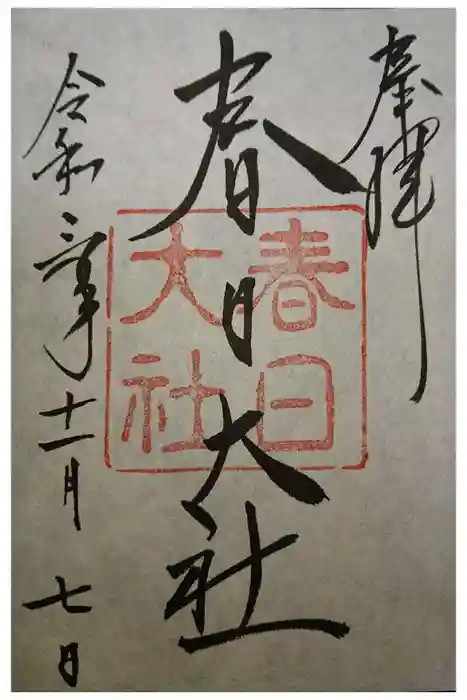 奉拝
春日大社
春日
大社
令和三年十一月七日